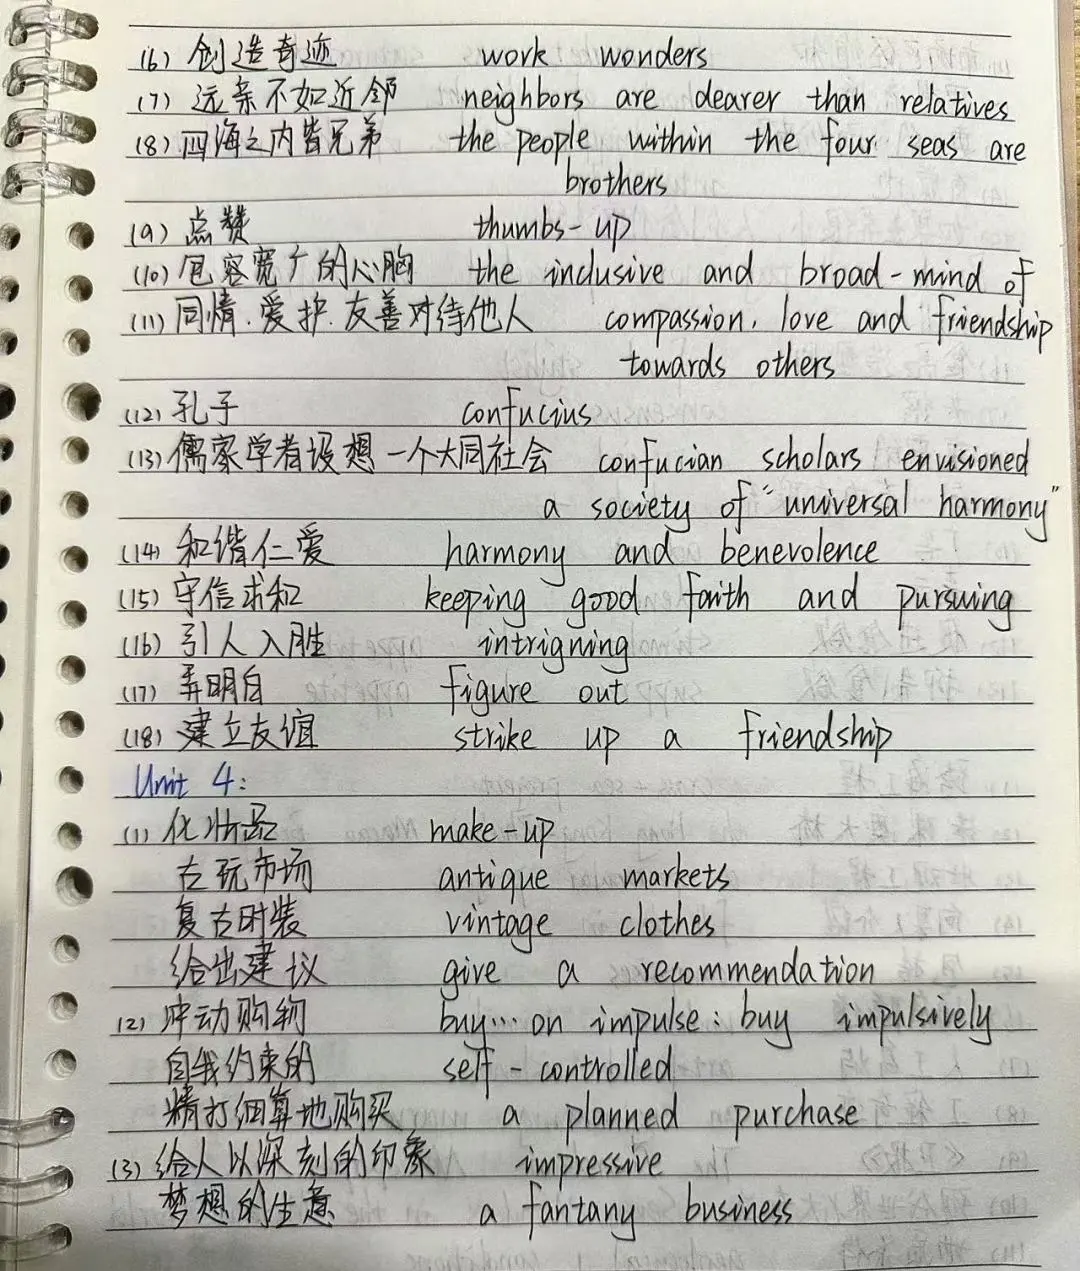 (6) 创造奇迹 work wonders
(7) 远亲不如近邻 neighbors are dearer than relatives
(8) 四海之内皆兄弟 the people within the four seas are
brothers
(9) 点赞 thumbs-up
(10) 包容宽广的心胸 the inclusive and broad-mind of
(11) 同情.爱护.友善对待他人 compassion, love and friendship
towards others
(12) 孔子 confucius
(13) 儒家学者设想一个大同社会 confucian scholars envisioned
a society of "universal harmony"
(14) 和谐仁爱 harmony and benevolence
(15) 守信求和 keeping good faith and pursuing
(16) 引人入胜 intrigning
(17) 弄明白 figure out
(18) 建立友谊 strike up a friendship
Unit 4:
(1) 化妆品 make-up
古玩市场 antique markets
复古时装 vintage clothes
给出建议 give a recommendation
(2) 冲动购物 buy...on impulse: buy impulsively
自我约束的 self-controlled
精打细算地购买 a planned purchase
(3) 给人以深刻的印象 impressive
梦想的生意 a fantany business